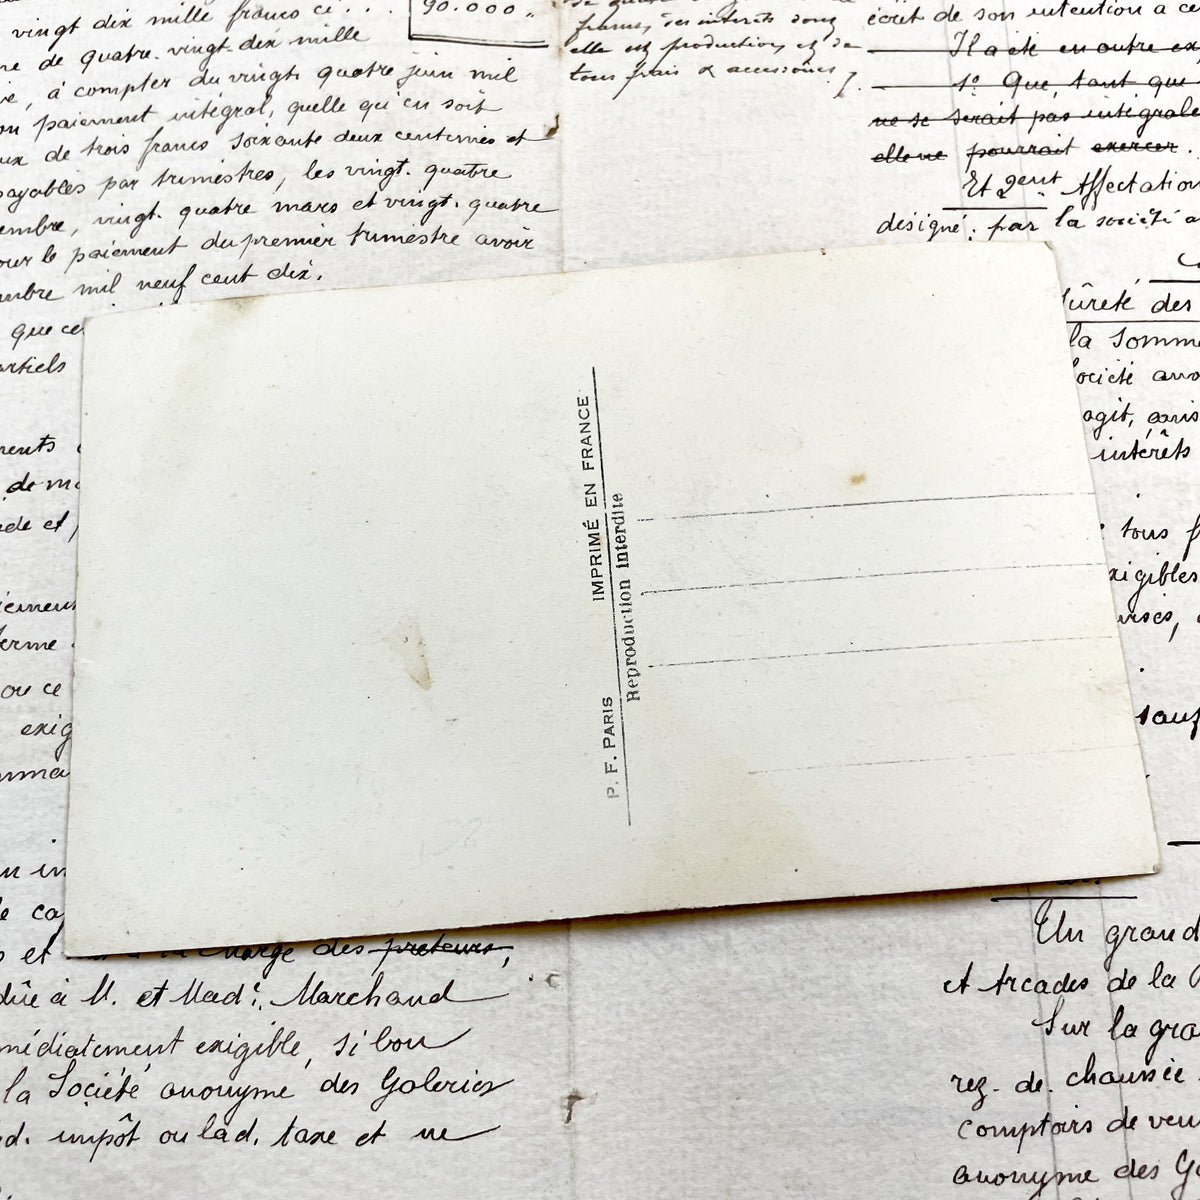 vingt dix mille francs ci...
90.000 "
de quatre. vingt. dix mille
, à compter du vingt. quatre juin mil
paiement intégral, quelle qu'en soit
de trois francs soixante deux centimes et
payables par trimestres, les vingt. quatre
embre, vingt. quatre mars et vingt. quatre
our le paiement du premier trimestre avoir
embre mil neuf cent dix.
que ce
artiels
ments
de m
de et
iement
erme
ou ce
exig
mma
francs, des intérêts dong
elle en production, et de
tous frais & accessoires,
écret de son intention a ce
Il a été en outre ex
1º Que, tant que
ne se serait pas intégrale
elle ne pourrait exercer.
Et 2ent Affectation
désigné. par la société a
Sûreté des
la somm
ociété ano
agit, 
intérêts
tous f
xigibles
sauf
P. F. PARIS IMPRIMÉ EN FRANCE
Reproduction interdite
et charge des preteurs,
dûe à M. et Made. Marchand
médiatement exigible, si bon
la Société anonyme des Galeries
d. impôt ou lad. taxe et ne
Un grand
et Arcades de la
Sur la gra
rez. de. chaussée
comptoirs de ven
anonyme des Ga